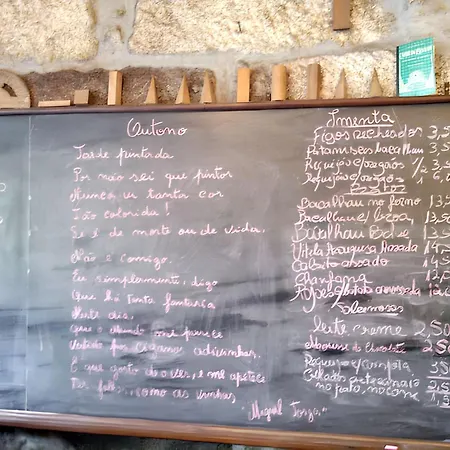 Outono
Tarde pintada
Por não sei que pintor
Nunca vi tanta cor
Tão colorida!
Se é de morte ou de vida.
Não é comigo.
Eu simplesmente, digo
Que há tanta fantasia
Neste dia,
Que o mundo me parece
Vestido por ciganas adivinhas,
E que gosto de o ver, e me apetece
Ter folhas, como as vinhas,
Miguel Torga.
Ementa
Figos recheados 3,5
Pataniscas bacalhau 3,5
Requeijão c/oregãos 1/2
Requeijão c/oregãos 1
Pratos
Bacalhau no forno 13,5
Bacalhau c/broa 13,5
Bacalhau
Vitela Assada
Cabrito assado
Chanfana
assada
Sobremesas
Leite creme 2,50
Mousse de Chocolate 2,50
Requeijão c/compota
Gelados artesanais
no prato, no cone